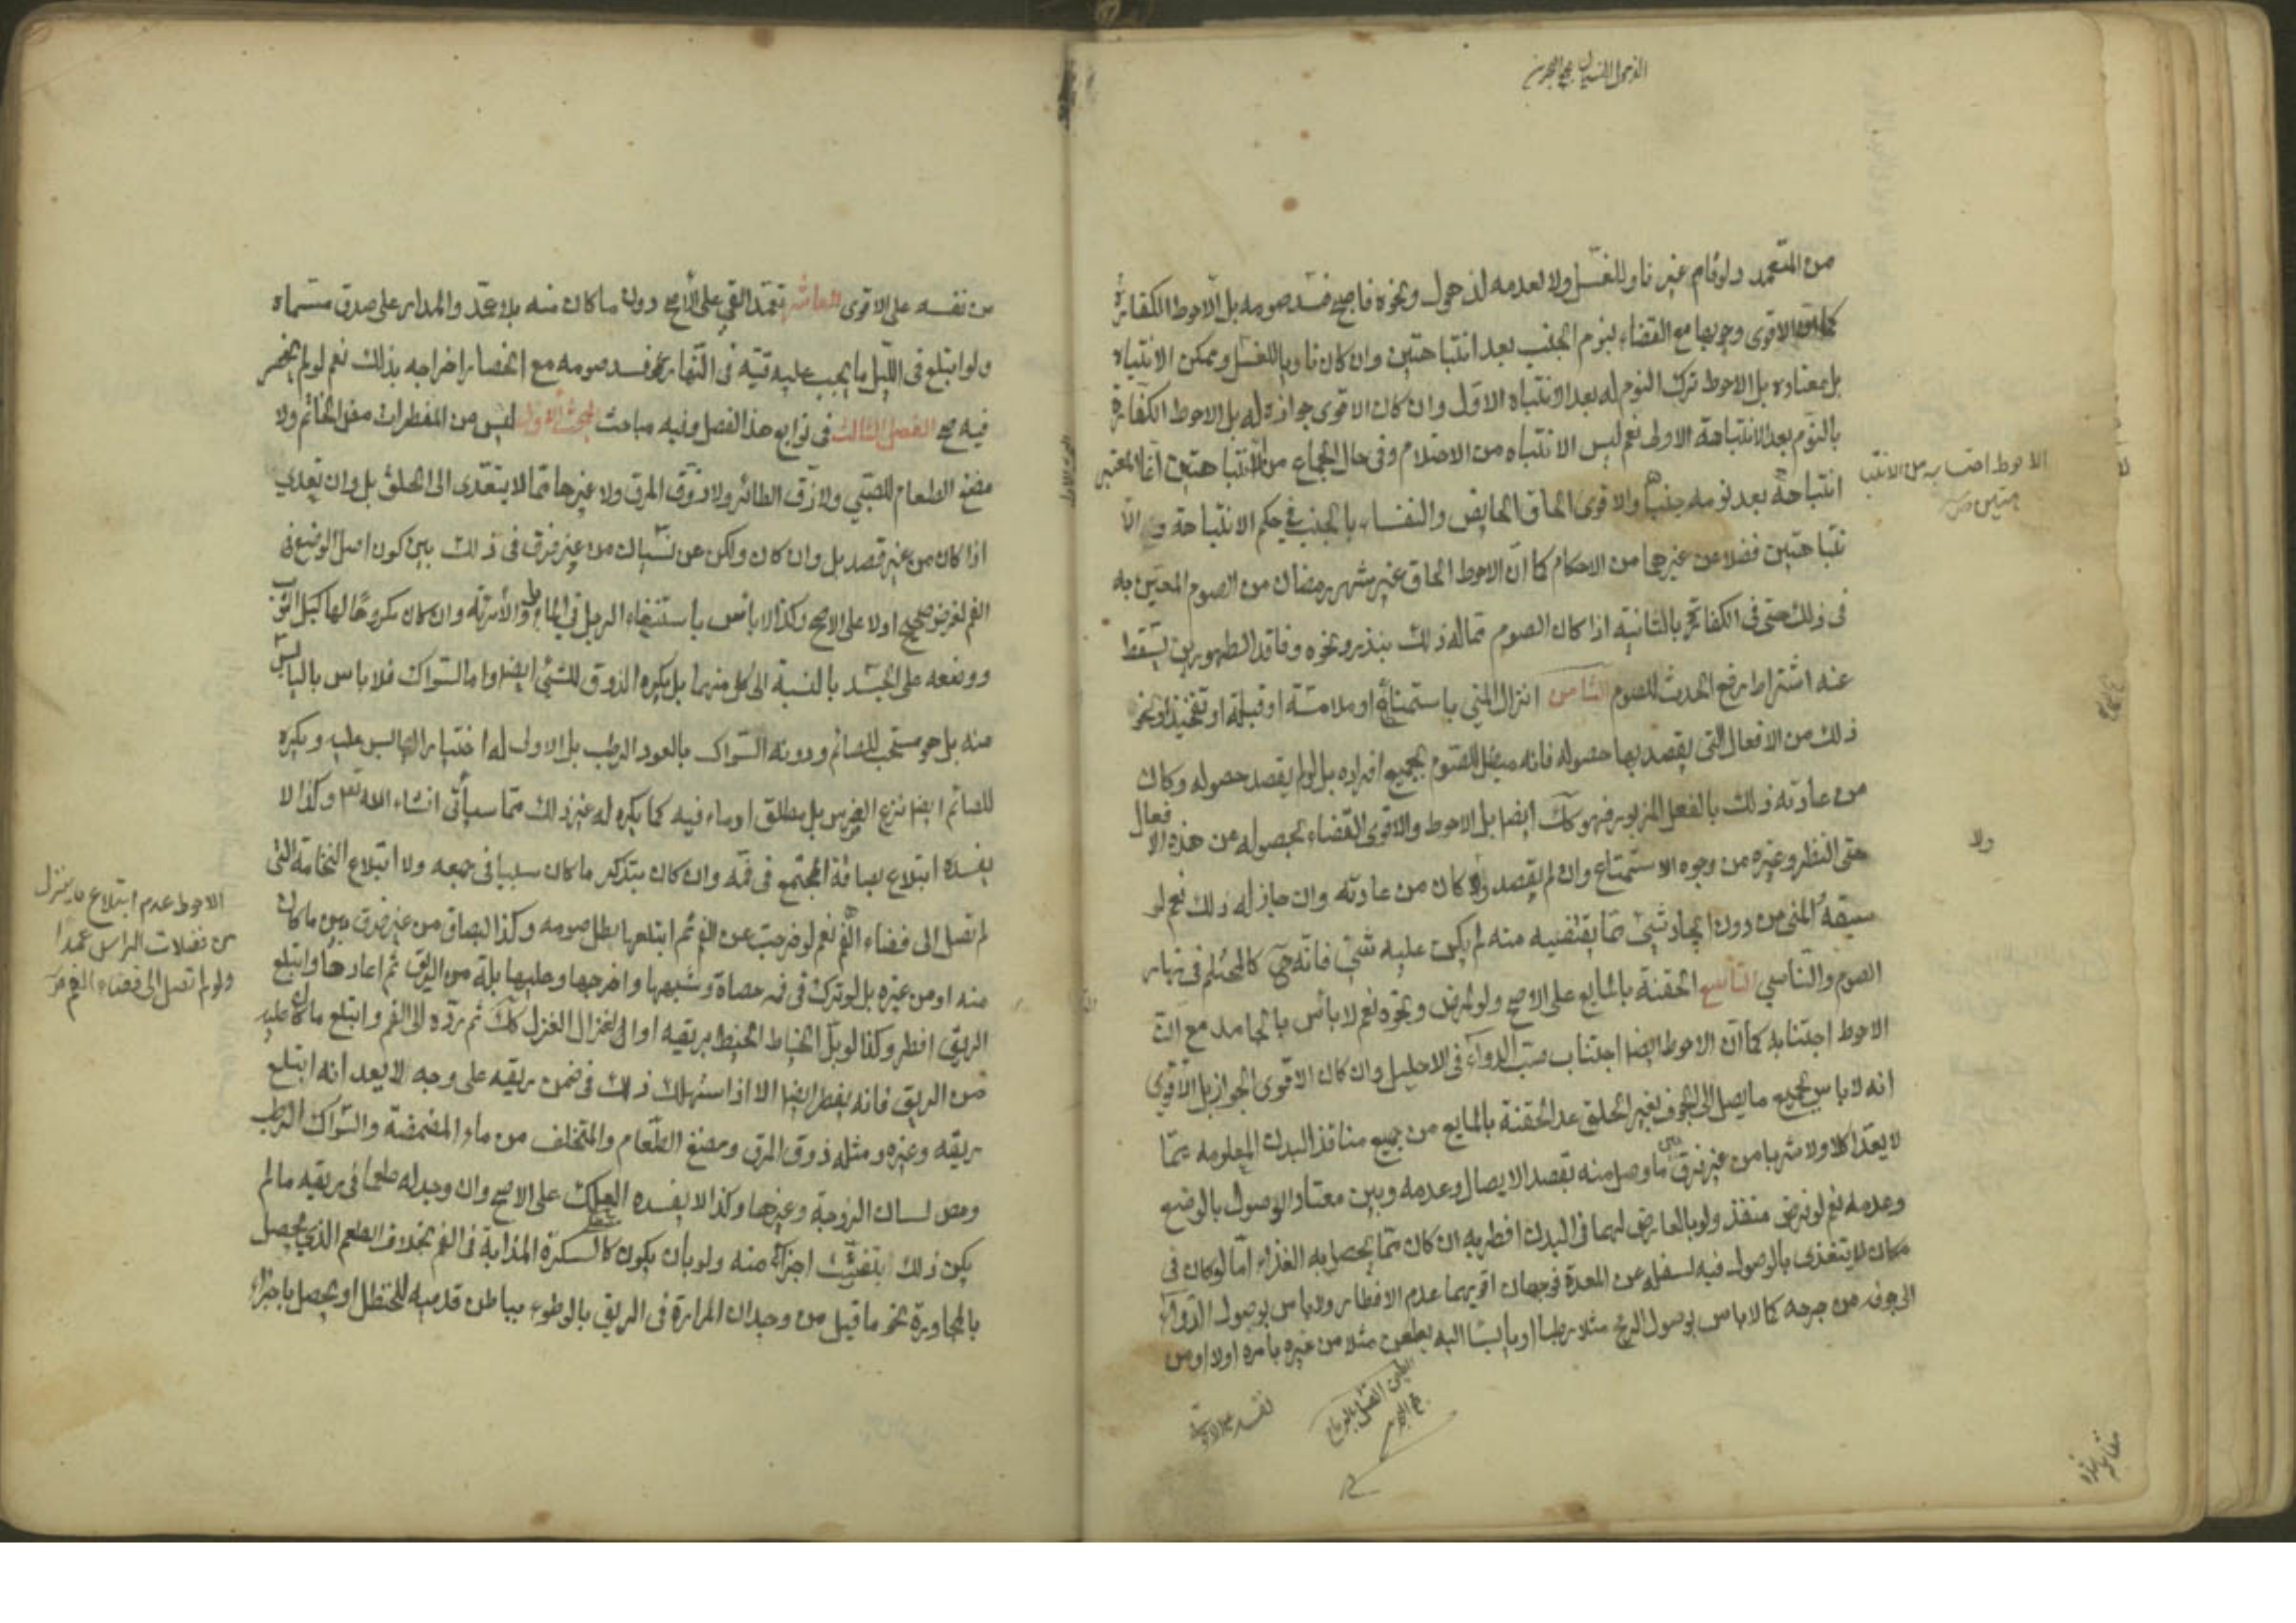 الذهول النسيان مجمع البحرين
من المتعمد ولو نام غير ناو للغسل ولا لعدمه لذهول ونحوه فاصبح فسد صومه بل الاحوط الكفارة
كما ان الاقوى وجوبها مع القضاء بنوم الجنب بعد انتباهتين وان كان ناويا للغسل وممكن الانتباه
بل معتاده بل الاحوط ترك النوم له بعد الانتباه الاول وان كان الاقوى جوازه له بل الاحوط الكفارة
بالنوم بعد الانتباهة الاولى نعم ليس الانتباه من الاحتلام وفى حال الجماع من الانتباهتين انما المعتبر
انتباهة بعد نومه جنبا والاقوى الحاق الحايض والنفساء بالجنب في حكم الانتباهة و الا
نتباهتين فضلا عن غيرها من الاحكام كما ان الاحوط الحاق غير شهر رمضان من الصوم المعين به
فى ذلك حتى فى الكفارة بالثانية اذا كان الصوم مما له ذلك بنذر ونحوه وفاقد الطهورين يسقط
عنه اشتراط رفع الحدث للصوم الثامن انزال المني باستمناء او ملامسة او قبلة او تفخيذ او نحو
ذلك من الافعال التى يقصد بها حصوله فانه مبطل للصوم بجميع افراده بل لو لم يقصد حصوله وكان
من عادته ذلك بالفعل المزبور فهو كك ايضا بل الاحوط والاقوى القضاء بحصوله من هذه الافعال
حتى النظر وغيره من وجوه الاستمتاع وان لم يقصد ولا كان من عادته وان جاز له ذلك نعم لو
سبقه المنى من دون ايجاد شيئ مما يقتضيه منه لم يكن عليه شيئ فانه حى كالمحتلم فى نهار
الصوم والناسي التاسع الحقنة بالمايع على الاصح ولو لمرض ونحوه نعم لا بأس بالجامد مع ان
الاحوط اجتنابه كما ان الاحوط ايضا اجتناب صب الدواء فى الاحليل وان كان الاقوى الجواز بل الاقوى
انه لا باس بجميع ما يصل الى الجوف بغير الحلق عدا الحقنة بالمايع من جميع منافذ البدن المعلومة مما
لا يعد اكلا ولا شربا من غير فرق بين ما وصل منه بقصد الايصال وعدمه وبين معتاد الوصول بالوضع
وعدمه نعم لو فرض منفذ ولو بالعارض لهما فى البدن افطر به ان كان مما يحصل به الغذاء اما لو كان فى
مكان لا يتغذى بالوصول فيه لسفله عن المعدة فوجهان اقويهما عدم الافطار ولا باس بوصول الدواء
الى جوفه من جرحه كما لا باس بوصول الرمح مثلا رطبا او يابسا اليه بطعن مثلا من غيره بامره اولا او من
نفسه على الاقوى
الطعن القتل بالرماح
مجمع البحرين
الاحوط احتسابه من الانتبا
هتين
ولا
مقابله شد
من نفسه على الاقوى العاشر تعمد القي على الاصح دون ما كان منه بلا عمد والمدار على صدق مسماه
ولو ابتلع فى الليل ما يجب عليه قيئه فى النهار فسد صومه مع انحصار اخراجه بذلك نعم لو لم ينحصر
فيه صح الفصل الثالث فى توابع هذا الفصل وفيه مباحث المبحث الاول ليس من المفطرات مص الخاتم ولا
مضغ الطعام للصبي ولا زق الطائر ولا ذوق المرق ولا غيرها مما لا يتعدى الى الحلق بل وان تعدي
اذا كان من غير قصد بل وان كان ولكن عن نسيان من غير فرق فى ذلك بين كون اصل الوضع فى
الفم لغرض صحيح اولا على الاصح وكذا لا باس باستنقاع الرجل فى الماء والامرئة وان كان مكروها لها كبل الثوب
ووضعه على الجسد بالنسبة الى كل منهما بل يكره الذوق للشئ ايضا واما السواك فلا باس باليابس
منه بل هو مستحب للصائم ودونه السواك بالعود الرطب بل الاولى له اختيار اليابس عليه ويكره
للصائم ايضا نزع الضرس بل مطلق ادماء فيه كما يكره له غير ذلك مما سيأتى انشاء الله تعالى وكذا لا
يفسده ابتلاع بصاقه المجتمع فى فمه وان كان بتذكر ما كان سببا فى جمعه ولا ابتلاع النخامة التى
لم تصل الى فضاء الفم نعم لو خرجت عن الفم ثم ابتلعها بطل صومه وكذا البصاق من غير فرق بين ما كان
منه او من غيره بل لو ترك فى فمه حصاة وشبهها واخرجها وعليها بلة من الريق ثم اعادها وابتلع
الريق افطر وكذا لو بل الخياط الخيط بريقه او الغزال الغزل كك ثم رده الى الفم وابتلع ما كان عليه
من الريق فانه يفطر ايضا الا اذا استهلك ذلك فى ضمن ريقه على وجه لا يعد انه ابتلع
ريقه وغيره ومثله ذوق المرق ومضغ الطعام والمتخلف من ماء المضمضة والسواك الرطب
ومص لسان الزوجة وغيرها وكذا لا يفسده العلك على الاصح وان وجد له طعما فى ريقه ما لم
يكن ذلك بتفتت اجزاء منه ولو بان يكون كالسكرة المذابة فى الفم بخلاف الطعم الذي يحصل
بالمجاورة نحو ما قيل من وجدان المرارة فى الريق بالوطوء بباطن قدميه للحنظل او يحصل باجزاء
الاحوط عدم ابتلاع ما ينزل
من فضلات الراس عمدا
ولو لم تصل الى فضاء الفم